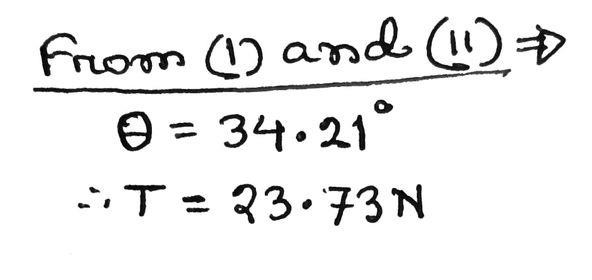 From (I) and (II) ⇒
θ = 34.21°
∴ T = 23.73N